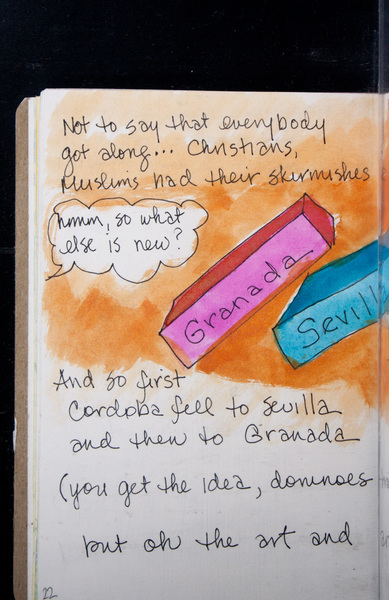 Not to say that everybody
got along... Christians,
Muslims had their skirmishes
hmmm, so what
else is new?
Granada
Sevill
And so first
Cordoba fell to Sevilla
and then to Granada
(you get the idea, dominoes
but oh the art and
22